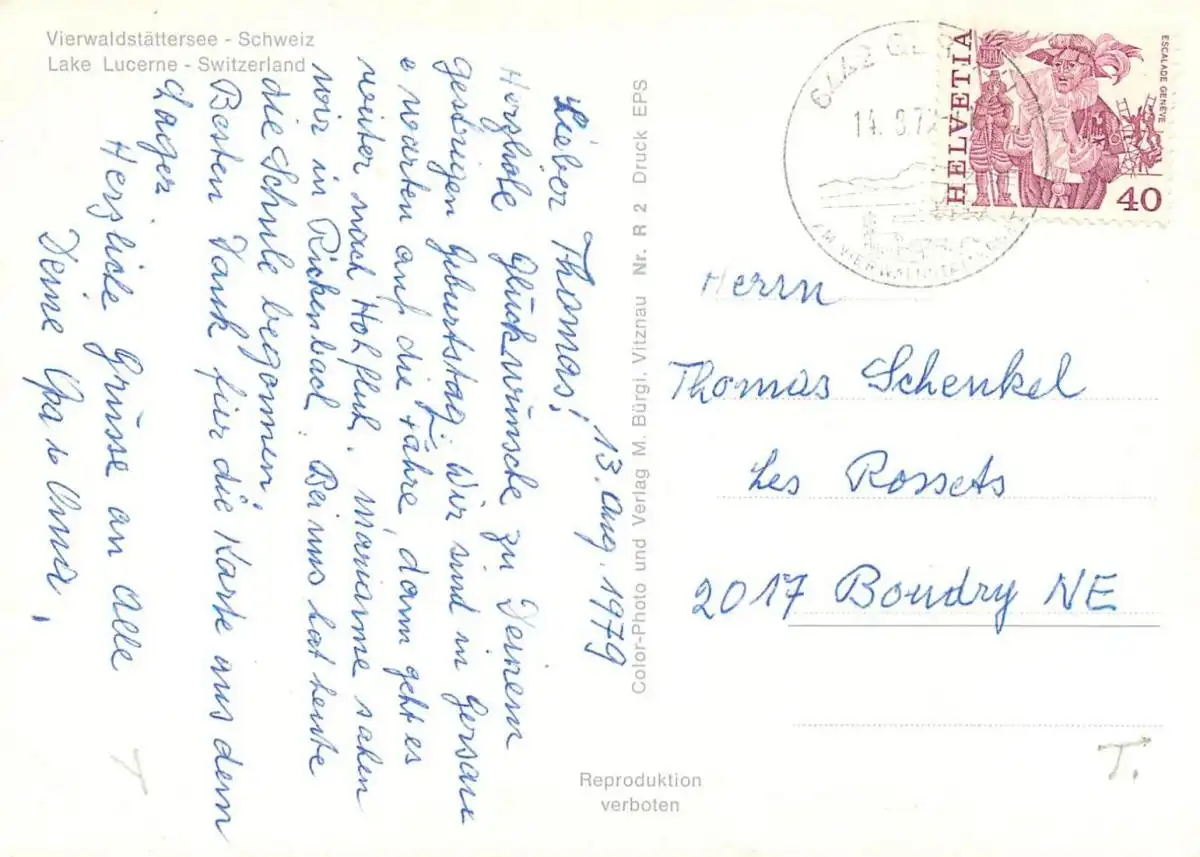 Vierwaldstättersee - Schweiz
Lake Lucerne - Switzerland
13. Aug. 1979
Lieber Thomas!
Herzliche Glückwünsche zu Deinem
gestrigen Geburtstag. Wir sind in Gersau
e warten auf die Fähre, dann geht es
weiter nach Hoffluh. Marianne sahen
wir in Rickenbach. Bei uns hat heute
die Schule begonnen.
Besten Dank für die Karte aus dem
Lager
Herzliche Grüsse an Alle
Deine Opa u Oma,
Color-Photo und Verlag M. Bürgi, Vitznau Nr. R 2 Druck EPS
Reproduktion
verboten
6442
14. 8.
AM VIERWALDSTÄTTERSEE
HELVETIA
ESCALADE GENÈVE
40
Herrn
Thomas Schenkel
Les Rossets
2017 Boudry NE
T.
T